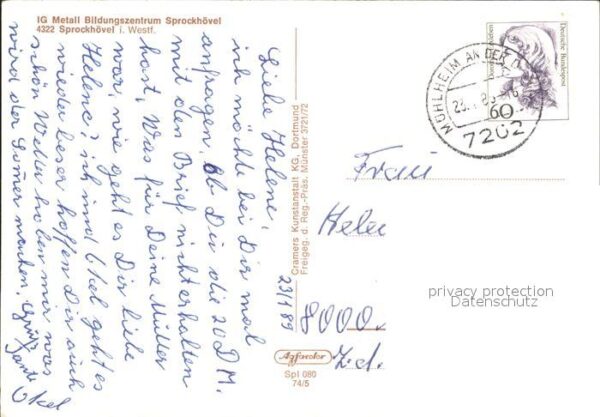 IG Metall Bildungszentrum Sprockhövel
4322 Sprockhövel i. Westf.
Liebe Helene,
ich möchte bei Dir mal
anfragen, Ob Du die 20 DM.
mit den Brief nicht erhalten
hast, Was für Deine Mutter
war, wie geht es Dir liebe
Helene, ich und Okel geht es
wieder beser hoffen Dir auch
schön Weter haben mir was
wird der Somer machen, Grüß
Tante Okel
23/1 89
Cramers Kunstanstalt KG, Dortmund
Freigeg. d. Reg.-Präs. Münster 3721/72
Agfacolor
Spl 080
74/5
Deutsche Bundespost
60
MÜHLHEIM AN DER
7202
Frau
Helen
8000.
privacy protection
Datenschutz